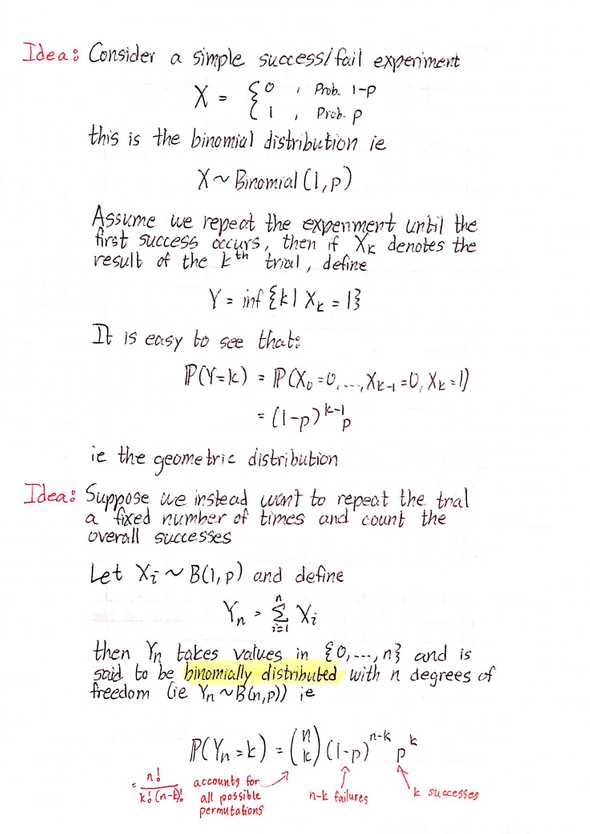 Idea: Consider a simple success/fail experiment
X = { 0 , Prob. 1-p
1 , Prob. p
this is the binomial distribution ie
X ~ Binomial (1,p)
Assume we repeat the experiment until the
first success occurs, then if Xk denotes the
result of the kth trial, define
Y = inf {k | Xk = 1}
It is easy to see that:
ℙ(Y=k) = ℙ(X₀=0,...,Xk-1=0, Xk=1)
= (1-p)^k-1 p
ie the geometric distribution
Idea: Suppose we instead want to repeat the trial
a fixed number of times and count the
overall successes
Let Xi ~ B(1,p) and define
Yn = Σ i=1 n Xi
then Yn takes values in {0,...,n} and is
said to be binomially distributed with n degrees of
freedom (ie Yn ~ B(n,p)) ie
ℙ(Yn=k) = (n k) (1-p)^n-k p^k
= n!/k!(n-k)! accounts for all possible permutations
n-k failures
k successes